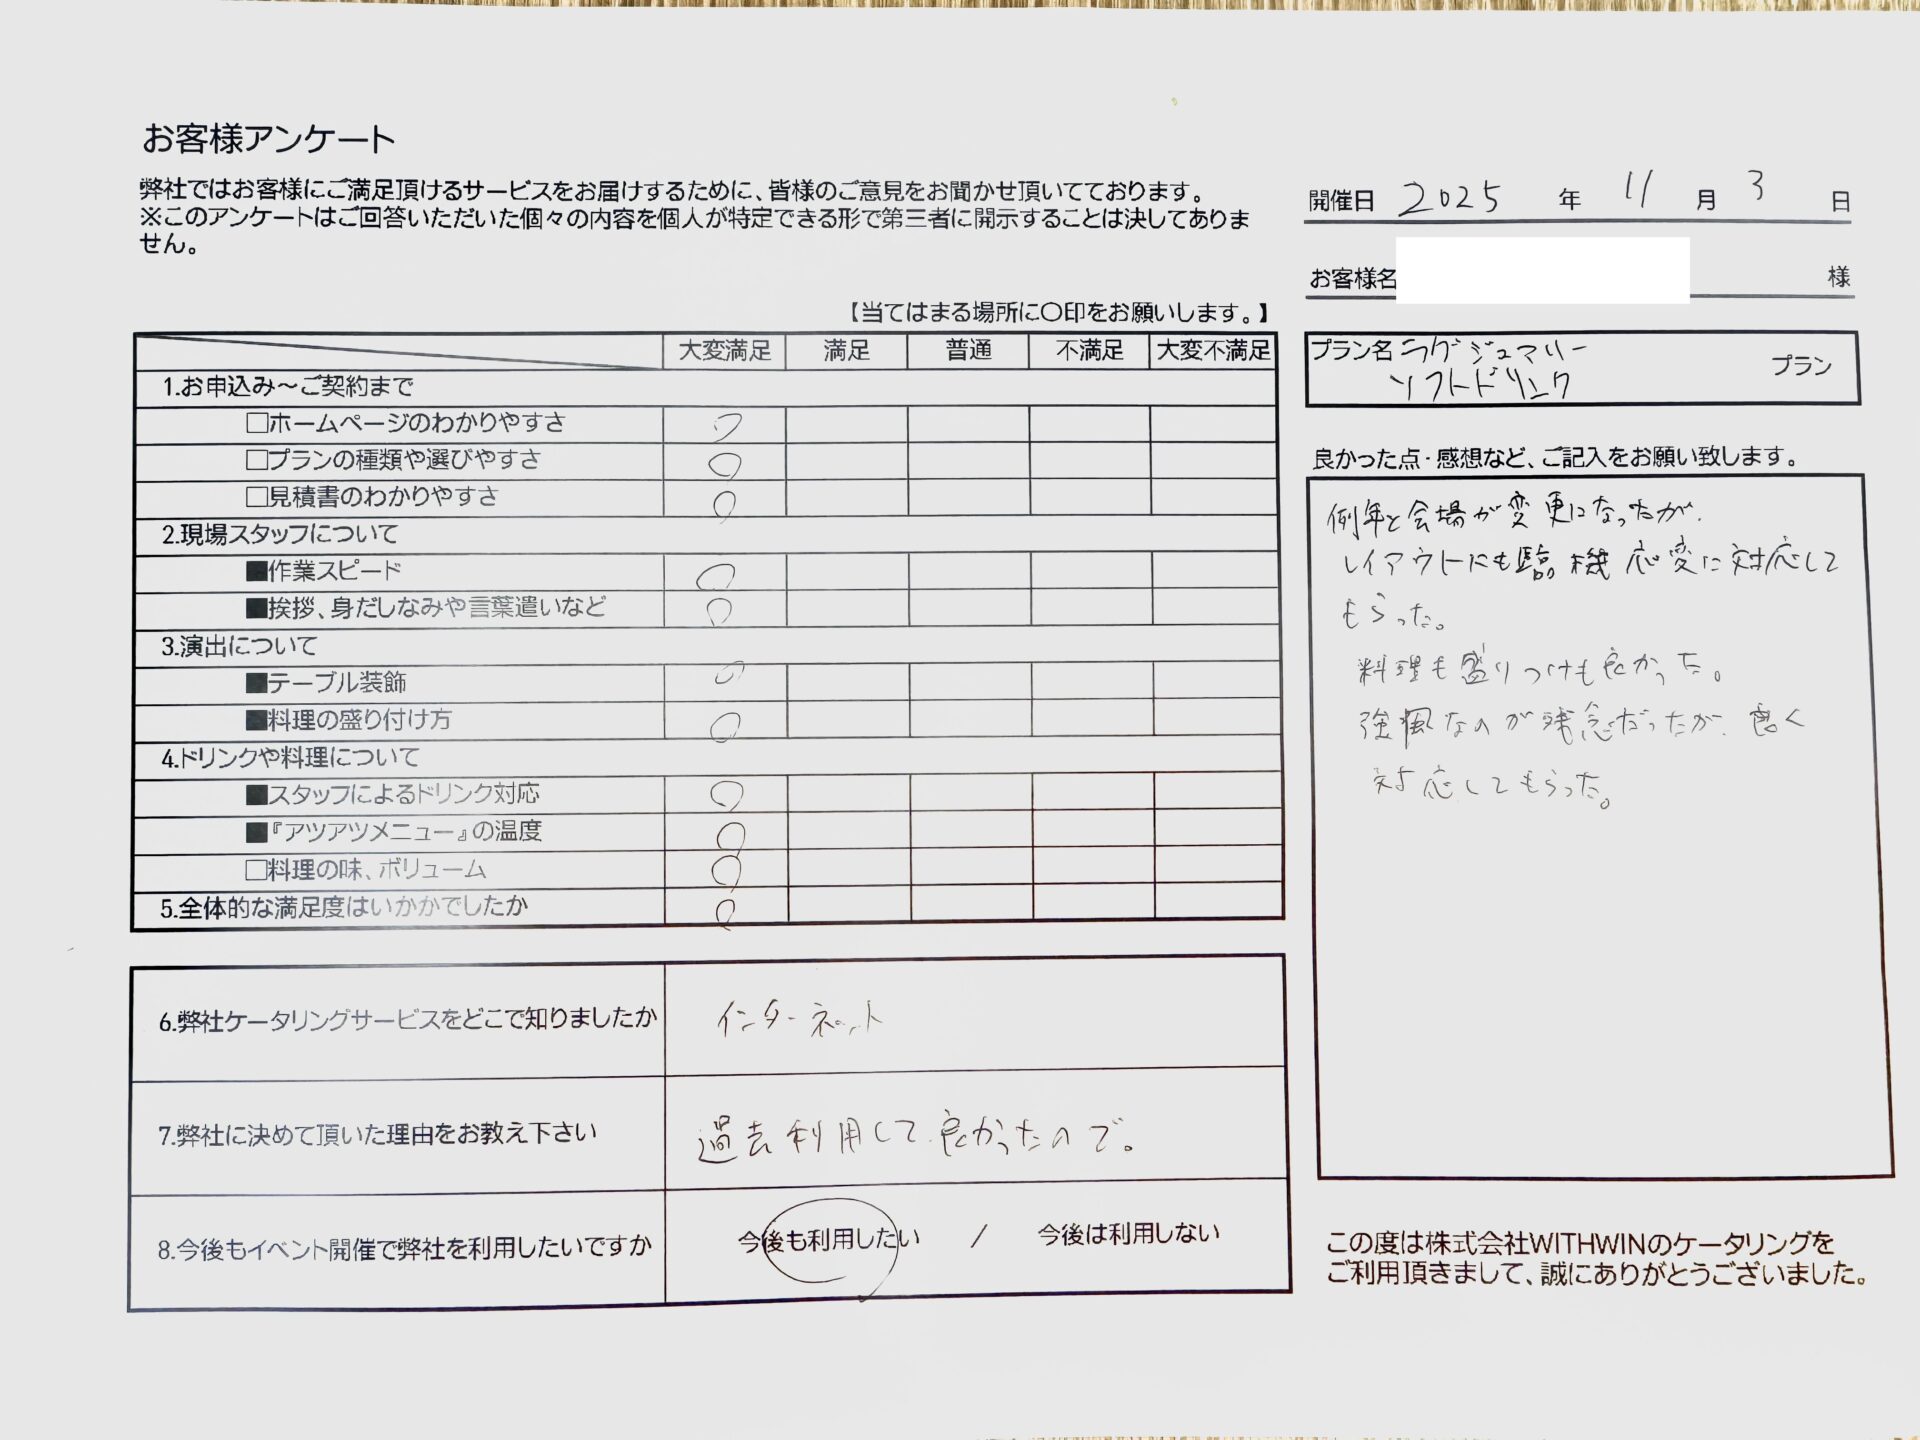 お客様アンケート
弊社ではお客様にご満足頂けるサービスをお届けするために、皆様のご意見をお聞かせ頂いてております。
※このアンケートはご回答いただいた個々の内容を個人が特定できる形で第三者に開示することは決してありま
せん。
開催日 2025 年 11 月 3 日
お客様名 様
【当てはまる場所に〇印をお願いします。】
プラン名 ラグジュアリー
ソフトドリンク
プラン
大変満足 満足 普通 不満足 大変不満足
1.お申込み～ご契約まで
□ホームページのわかりやすさ ○
□プランの種類や選びやすさ ○
□見積書のわかりやすさ ○
2.現場スタッフについて
■作業スピード ○
■挨拶、身だしなみや言葉遣いなど ○
3.演出について
■テーブル装飾 ○
■料理の盛り付け方 ○
4.ドリンクや料理について
■スタッフによるドリンク対応 ○
■『アツアツメニュー』の温度 ○
□料理の味、ボリューム ○
5.全体的な満足度はいかかでしたか ○
良かった点・感想など、ご記入をお願い致します。
例年と会場が変更になったが、
レイアウトにも臨機応変に対応して
もらった。
料理も盛りつけも良かった。
強風なのが残念だったが、良く
対応してもらった。
6.弊社ケータリングサービスをどこで知りましたか インターネット
7.弊社に決めて頂いた理由をお教え下さい 過去利用して良かったので。
8.今後もイベント開催で弊社を利用したいですか 今後も利用したい / 今後は利用しない
この度は株式会社WITHWINのケータリングを
ご利用頂きまして、誠にありがとうございました。